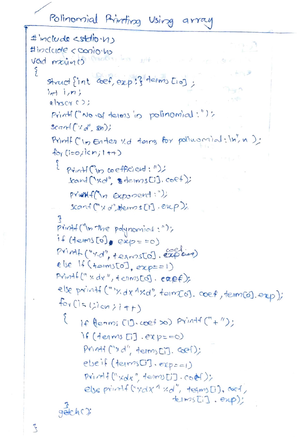 Polinomial Printing Using array
#include <stdio.h>
#include <conio.h>
void main()
{
struct {int coef, exp;} terms[10];
int i,n;
clrscr();
Printf("No. of terms in polinomial:");
scanf("%d", &n);
Printf("\n Enter %d terms for polinomial:\n", n);
for(i=0; i<n; i++)
{ Printf("\n coefficient:");
scanf("%d", &terms[i].coef);
Printf("\n exponent:");
scanf("%d", &terms[i].exp);
}
printf("\n The polynomial:");
if (terms[0].exp==0)
printf("%d", terms[0].coef);
else if (terms[0].exp==1)
printf("%dx", terms[0].coef);
else printf("%dx^%d", term[0].coef, term[0].exp);
for(i=1; i<n; i++)
{ if (terms[i].coef>0) Printf("+");
if (terms[i].exp==0)
Printf("%d", terms[i].coef);
else if (terms[i].exp==1)
Printf("%dx", terms[i].coef);
else printf("%dx^%d", terms[i].coef,
terms[i].exp);
}
getch();
}